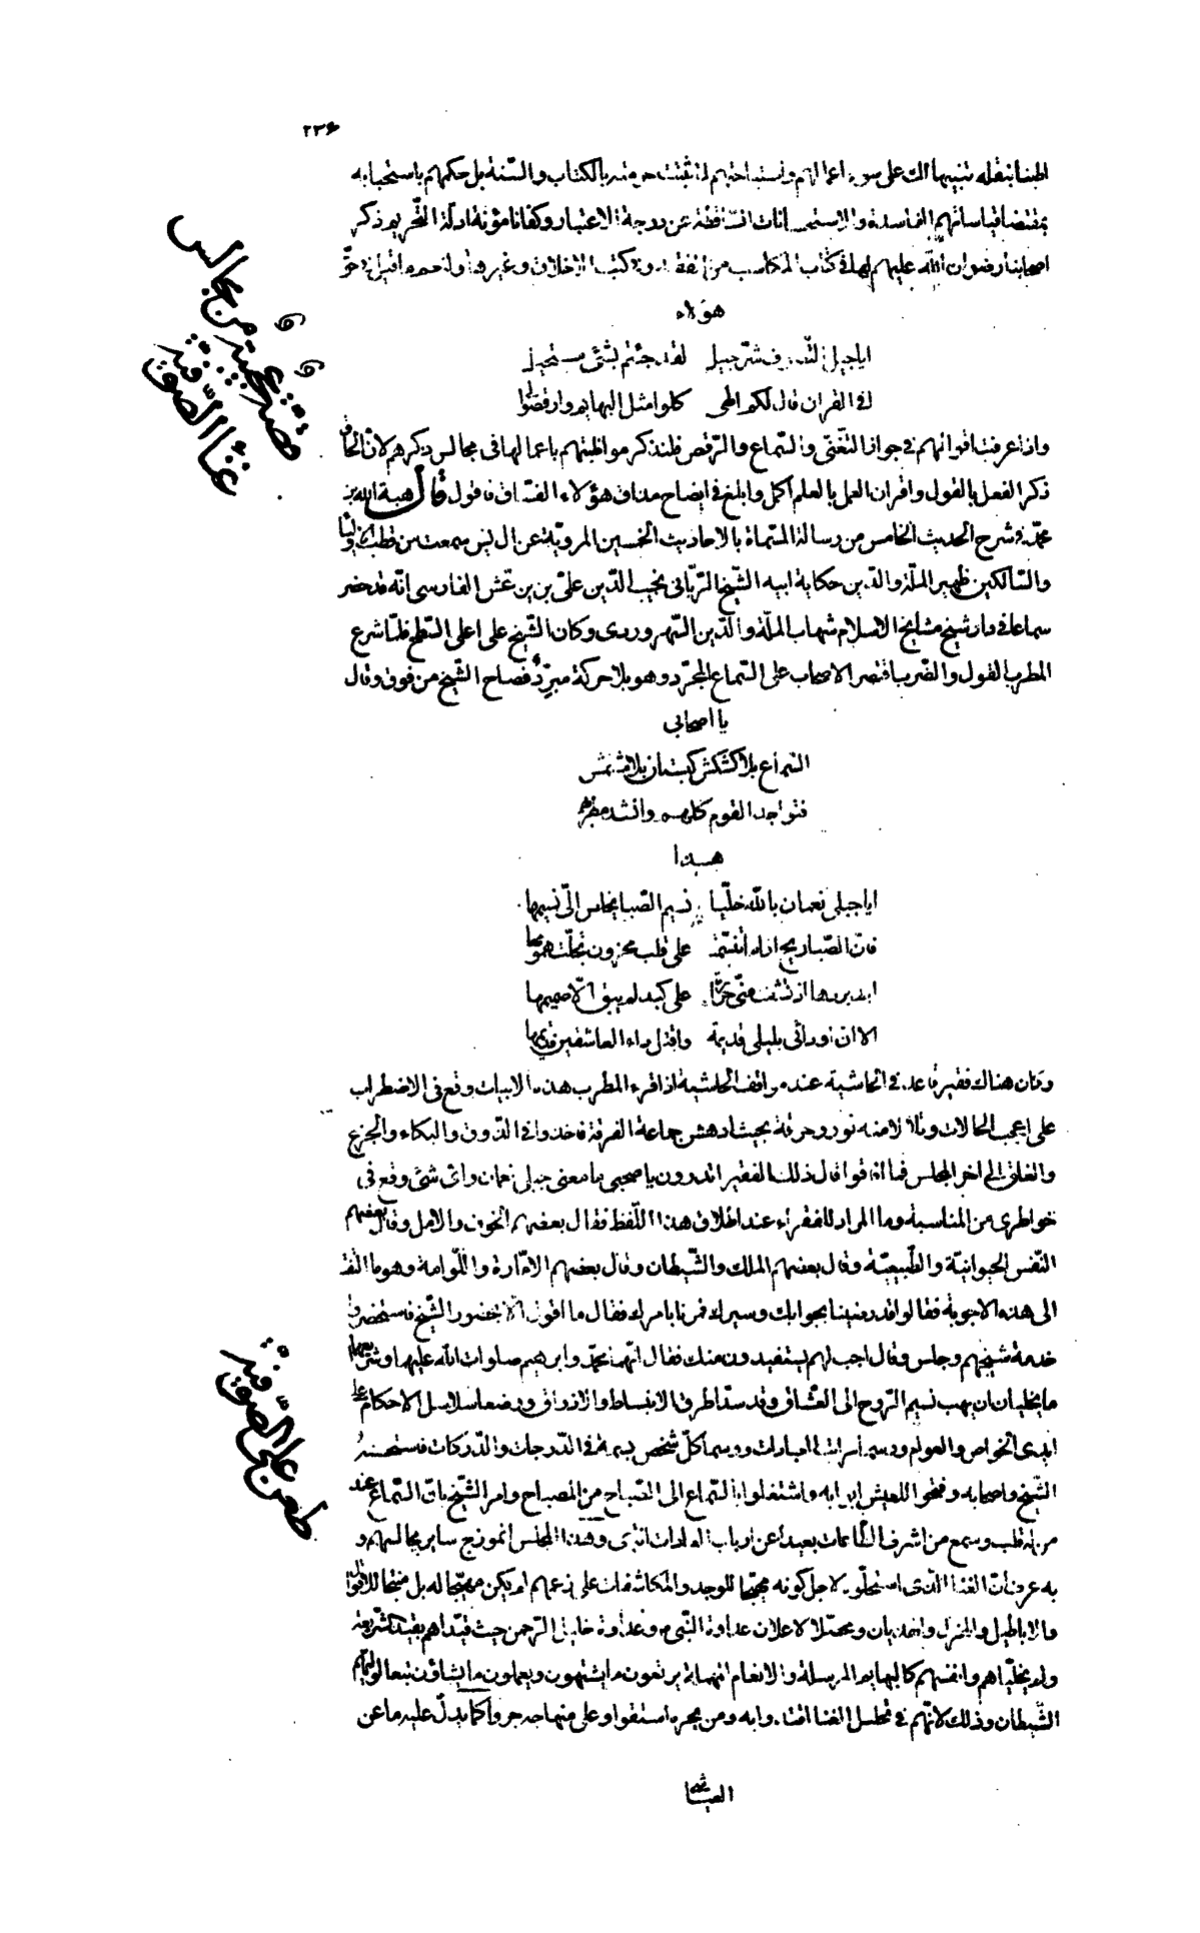 ٢٣۶
اطنبنا بنقله تنبيها لك على سوء اعمالهم واستباحتهم لما ثبتت حرمته بالكتاب والسّنة بل حكمهم باستحبابه
بمقتضا قياساتهم الفاسدة والاستحسانات السّاقطة عن درجة الاعتبار وكفانا مؤنة ادلّة التّحريم ذكر
اصحابنا رضوان اللّه عليهم لها فى كتاب المكاسب من الفقه وكتب الاخلاق وغيرها
هؤلاء
ايا جيل التّصوف شرّ جيل لقد جئتم بشئ مستحيل
افى القران قال لكم الهى كلوا مثل البهايم وارقصوا
واذا عرفت اقوالهم فى جواز التّغنّى والسّماع والرّقص فلنذكر مواظبتهم باعمالها فى مجالس ذكرهم لانّ الحاق
ذكر الفعل بالقول واقران العمل بالعلم اكمل وابلغ فى ايضاح مذاق هؤلاء الفسّاق فاقول قال هبة الله بن
محمّد فى شرح الحديث الخامس من رسالة المسمّاة بالاحاديث الخمسين المرويّة عن سمعت من قطب الاولياء
والسّالكين ظهير الملّة والدّين حكاية ابيه الشّيخ الرّبّانى نجيب الدّين علىّ بن بزغش الفارسى انّه قد حضر
سماعا فى دار شيخ مشايخ الاسلام شهاب الملّة والدّين السّهروردى وكان الشّيخ على اعلى السّطح فلمّا شرع
المطرب القول والضّرب اقتصر الاصحاب على السّماع المجرّد وهو بلا حركة مبرّد فصاح الشّيخ من فوق وقال
يا اصحابى
السّماع بلا كشكش كبستان بلا مشمش
فتواجد القوم كلهم وانشد مطربهم
هذا
ايا جبلى نعمان باللّه خلّيا نسيم الصّبا يخلص الىّ نسيمها
فانّ الصّبا ريح اذا ما تنفّست على قلب محزون تجلّت همومها
اجد بردها او تشف منّى حرارة على كبد لم يبق الّا صميمها
الا ان ادوائى بليلى قديمة واقتل داء العاشقين قديمها
وكان هناك فقير قاعد فى الحاشية عند مواقف الحاشية اذا قرء المطرب هذه الابيات وقع فى الاضطراب
على اعجب الحالات وتلألأ منه نور وحرقة بحيث ادهش جماعة الفرقة فاخذوا فى الذّوق والبكاء والجزع
والقلق الى اخر المجلس فما افاقوا قال ذلك الفقير اتدرون يا صحبى ما معنى جبلى نعمان واىّ شئ وقع فى
خواطرى من المناسبة وما المراد للفقراء عند اطلاق هذا اللّفظ فقال بعضهم الخوف والامل وقال بعضهم
النّفس الحيوانيّة والطّبيعيّة وقال بعضهم الملك والشّيطان وقال بعضهم الامّارة واللّوامة وهو ما التفت
الى هذه الاجوبة فقالوا قد رضينا بجوابك وسيرك فمرنا بامرك فقال ما اقول الّا بحضور الشّيخ فاستحضروا
خدمة شيخهم وجلس وقال اجب لهم يستفيدون منك فقال انّهما محمّد وابرهيم صلوات اللّه عليهما وشريعتهما
ما يخليان ان يهب نسيم الرّوح الى العشّاق وقد سدّا طرق الانبساط والاذواق ووضعا سلاسل الاحكام على
ايدى الخواص والعوام ووسما كلّ شخص بسمة فى الدّرجات والدّركات فاستحسنه
الشّيخ واصحابه وفتحوا للعيش ابوابه واشتغلوا بالسّماع الى الصّباح من المصباح وامر الشّيخ بانّ السّماع عند
من له قلب وسمع من اشرف الطّاعات بعيدا عن ارباب العادات انتهى وهذا المجلس انموذج ساير مجالسهم و
به عرفت انّ الغناء الّذى استحلّوه لاجل كونه مهيّجا للوجد والمكاشفات على زعمهم لم يكن مهيّجا له بل منتجا للاقوال
والاباطيل والهزل والهذيان ومحصّلا لاعلان عداوة النّبىّ وعداوة خليل الرّحمن حيث قيّداهم بقيد الشّريعة
ولم يخلّياهم وانفسهم كالبهايم المرسلة والانعام المهملة يرتعون ما يشتهون ويعملون ما يشاؤن تبعا لوليّهم
الشّيطان وذلك لانّهم فى تحليل الغناء اقتدوا به ومن بحره استقوا وعلى منهاجه جروا كما يدلّ عليه ما عن
العيّاشى
قصّة عجيبة من مجالس
غناء الصّوفيّة
طعن على الصّوفيّة